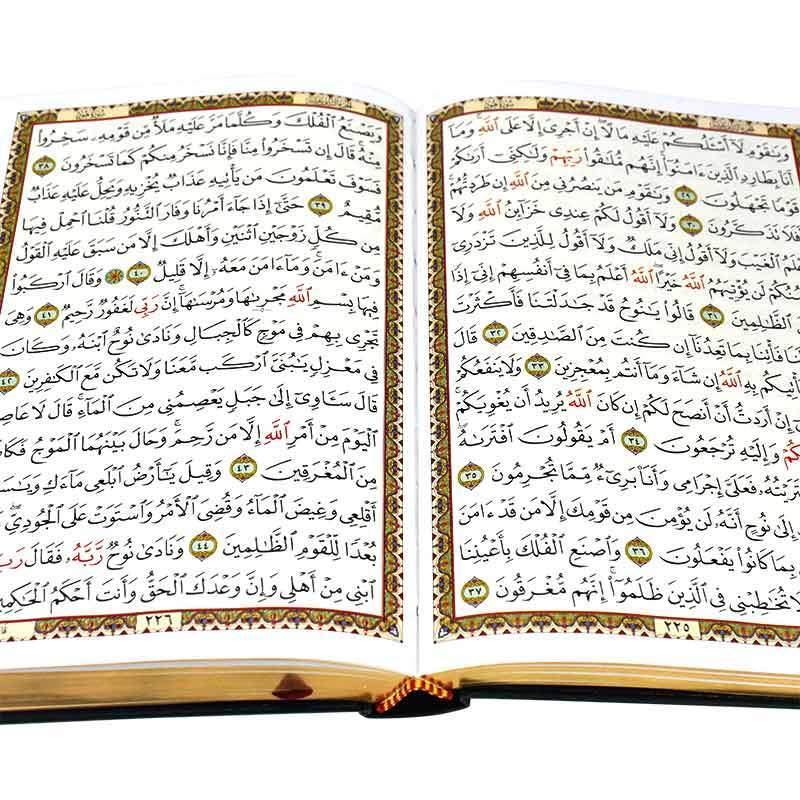 وَيَٰقَوْمِ لَآ أَسْـَٔلُكُمْ عَلَيْهِ مَالًا إِنْ أَجْرِىَ إِلَّا عَلَى ٱللَّهِ وَمَآ
أَنَا۠ بِطَارِدِ ٱلَّذِينَ ءَامَنُوٓا۟ إِنَّهُم مُّلَٰقُوا۟ رَبِّهِمْ وَلَٰكِنِّىٓ أَرَىٰكُمْ
قَوْمًا تَجْهَلُونَ ٢٩ وَيَٰقَوْمِ مَن يَنصُرُنِى مِنَ ٱللَّهِ إِن طَرَدتُّهُمْ
فَلَا تَذَكَّرُونَ ٣٠ وَلَآ أَقُولُ لَكُمْ عِندِى خَزَآئِنُ ٱللَّهِ وَلَآ
ٱلْغَيْبَ وَلَآ أَقُولُ إِنِّى مَلَكٌ وَلَآ أَقُولُ لِلَّذِينَ تَزْدَرِىٓ
لَن يُؤْتِيَهُمُ ٱللَّهُ خَيْرًا ٱللَّهُ أَعْلَمُ بِمَا فِىٓ أَنفُسِهِمْ إِنِّىٓ إِذًا
ٱلظَّٰلِمِينَ ٣١ قَالُوا۟ يَٰنُوحُ قَدْ جَٰدَلْتَنَا فَأَكْثَرْتَ
فَأْتِنَا بِمَا تَعِدُنَآ إِن كُنتَ مِنَ ٱلصَّٰدِقِينَ ٣٢ قَالَ
بِهِ ٱللَّهُ إِن شَآءَ وَمَآ أَنتُم بِمُعْجِزِينَ ٣٣ وَلَا يَنفَعُكُمْ
إِنْ أَرَدتُّ أَنْ أَنصَحَ لَكُمْ إِن كَانَ ٱللَّهُ يُرِيدُ أَن يُغْوِيَكُمْ
وَإِلَيْهِ تُرْجَعُونَ ٣٤ أَمْ يَقُولُونَ ٱفْتَرَىٰهُ
فَعَلَىَّ إِجْرَامِى وَأَنَا۠ بَرِىٓءٌ مِّمَّا تُجْرِمُونَ ٣٥
إِلَىٰ نُوحٍ أَنَّهُۥ لَن يُؤْمِنَ مِن قَوْمِكَ إِلَّا مَن قَدْ ءَامَنَ
بِمَا كَانُوا۟ يَفْعَلُونَ ٣٦ وَٱصْنَعِ ٱلْفُلْكَ بِأَعْيُنِنَا
تُخَٰطِبْنِى فِى ٱلَّذِينَ ظَلَمُوٓا۟ إِنَّهُم مُّغْرَقُونَ ٣٧
٢٢٥
وَيَصْنَعُ ٱلْفُلْكَ وَكُلَّمَا مَرَّ عَلَيْهِ مَلَأٌ مِّن قَوْمِهِۦ سَخِرُوا۟
مِنْهُ قَالَ إِن تَسْخَرُوا۟ مِنَّا فَإِنَّا نَسْخَرُ مِنكُمْ كَمَا تَسْخَرُونَ ٣٨
فَسَوْفَ تَعْلَمُونَ مَن يَأْتِيهِ عَذَابٌ يُخْزِيهِ وَيَحِلُّ عَلَيْهِ عَذَابٌ
مُّقِيمٌ ٣٩ حَتَّىٰٓ إِذَا جَآءَ أَمْرُنَا وَفَارَ ٱلتَّنُّورُ قُلْنَا ٱحْمِلْ فِيهَا
مِن كُلٍّ زَوْجَيْنِ ٱثْنَيْنِ وَأَهْلَكَ إِلَّا مَن سَبَقَ عَلَيْهِ ٱلْقَوْلُ
وَمَنْ ءَامَنَ وَمَآ ءَامَنَ مَعَهُۥٓ إِلَّا قَلِيلٌ ٤٠ ۞ وَقَالَ ٱرْكَبُوا۟
فِيهَا بِسْمِ ٱللَّهِ مَجْر۪ىٰهَا وَمُرْسَىٰهَآ إِنَّ رَبِّى لَغَفُورٌ رَّحِيمٌ ٤١ وَهِىَ
تَجْرِى بِهِمْ فِى مَوْجٍ كَٱلْجِبَالِ وَنَادَىٰ نُوحٌ ٱبْنَهُۥ وَكَانَ
فِى مَعْزِلٍ يَٰبُنَىَّ ٱرْكَب مَّعَنَا وَلَا تَكُن مَّعَ ٱلْكَٰفِرِينَ ٤٢
قَالَ سَـَٔاوِىٓ إِلَىٰ جَبَلٍ يَعْصِمُنِى مِنَ ٱلْمَآءِ قَالَ لَا عَاصِمَ
ٱلْيَوْمَ مِنْ أَمْرِ ٱللَّهِ إِلَّا مَن رَّحِمَ وَحَالَ بَيْنَهُمَا ٱلْمَوْجُ فَكَانَ
مِنَ ٱلْمُغْرَقِينَ ٤٣ وَقِيلَ يَٰٓأَرْضُ ٱبْلَعِى مَآءَكِ وَيَٰسَمَآءُ
أَقْلِعِى وَغِيضَ ٱلْمَآءُ وَقُضِىَ ٱلْأَمْرُ وَٱسْتَوَتْ عَلَى ٱلْجُودِىِّ وَقِيلَ
بُعْدًا لِّلْقَوْمِ ٱلظَّٰلِمِينَ ٤٤ وَنَادَىٰ نُوحٌ رَّبَّهُۥ فَقَالَ رَبِّ
ٱبْنِى مِنْ أَهْلِى وَإِنَّ وَعْدَكَ ٱلْحَقُّ وَأَنتَ أَحْكَمُ ٱلْحَٰكِمِينَ
٢٢٦